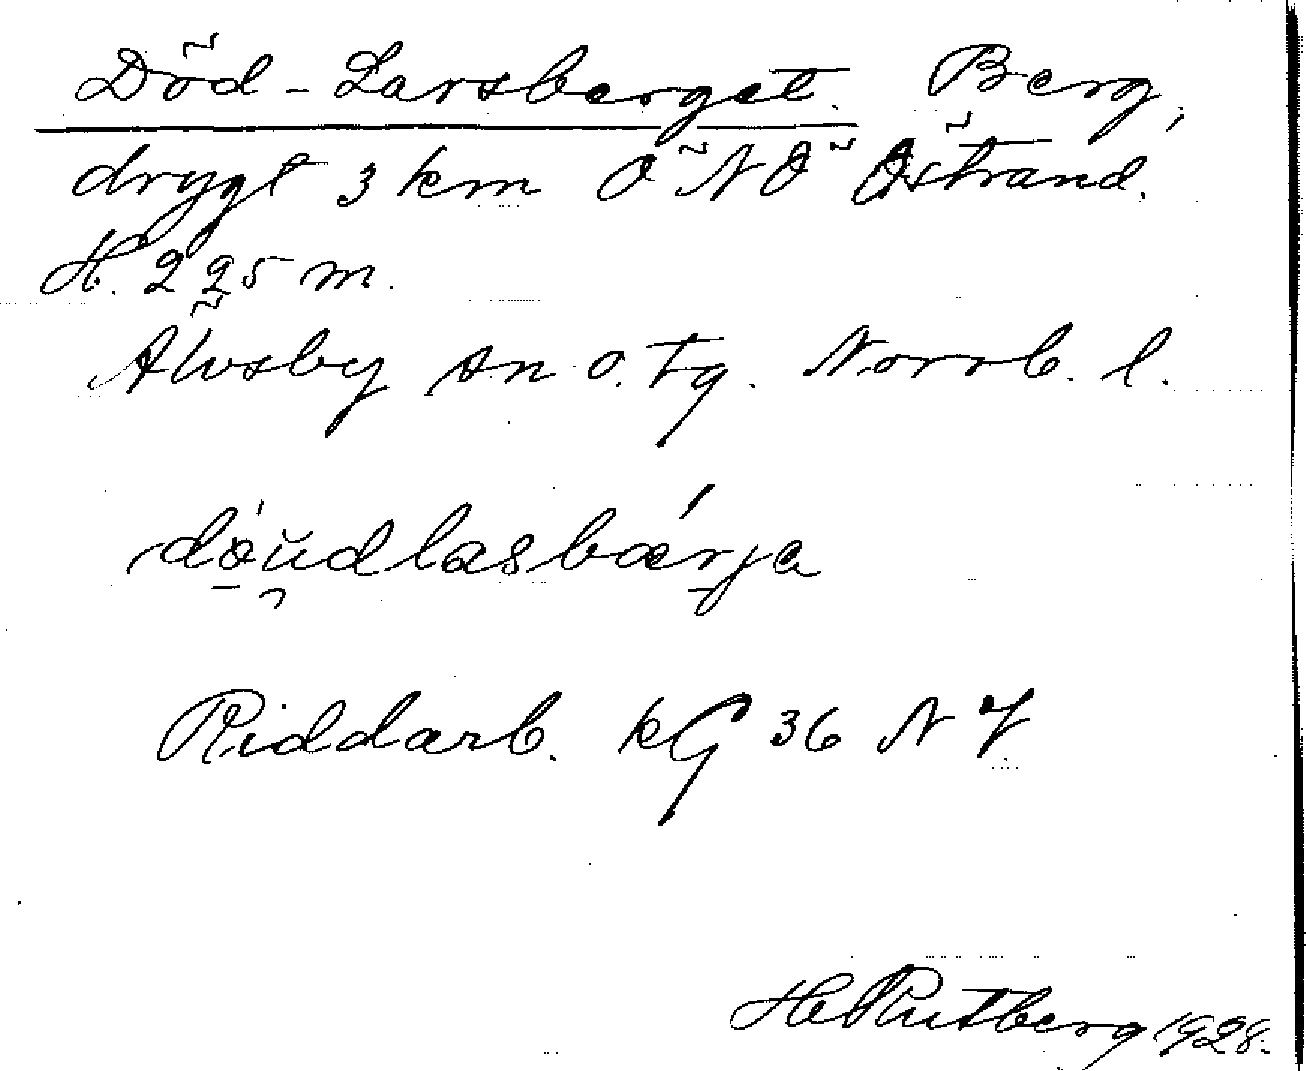 Död-Larsberget. Berg,
drygt 3 km Ö N Ö Östrand.
H. 225 m.
Älvsby sn o. tg. Norrb. l.
döu̯dlasbærja
Riddarb. kG 36 N
H Rutberg 1928.